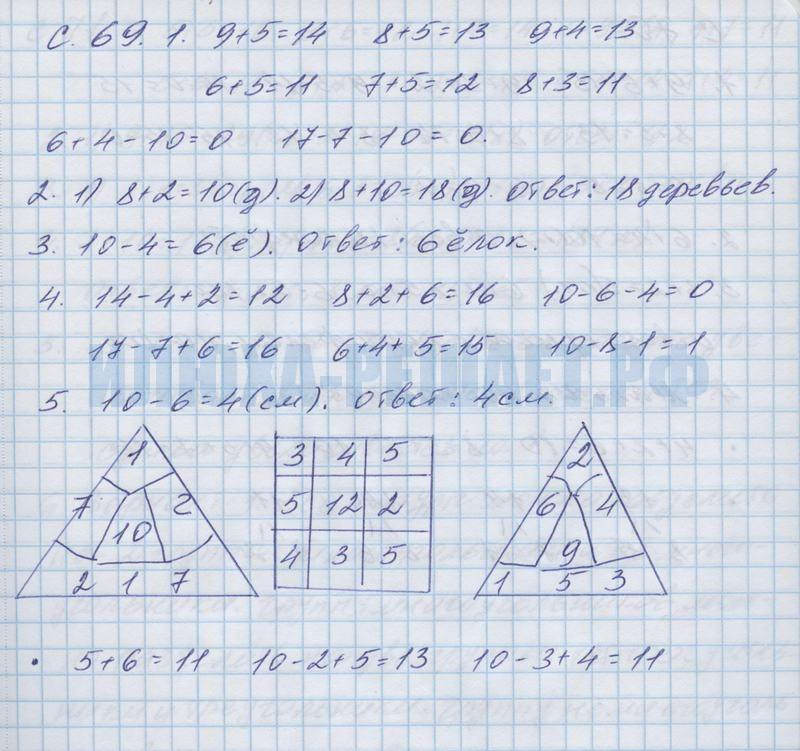 с. 69. 1. 9+5=14 8+5=13 9+4=13
6+5=11 7+5=12 8+3=11
6+4-10=0 17-7-10=0.
2. 1) 8+2=10(д). 2) 8+10=18(д). Ответ: 18 деревьев.
3. 10-4=6(ё). Ответ: 6 ёлок.
4. 14-4+2=12 8+2+6=16 10-6-4=0
17-7+6=16 6+4+5=15 10-8-1=1
ИЛЮХА-РЕШАЕТ.РФ
5. 10-6=4(см). Ответ: 4 см.
1 3 4 5 2
7 2 5 12 2 6 4
10 4 3 5 9
2 1 7 1 5 3
• 5+6=11 10-2+5=13 10-3+4=11